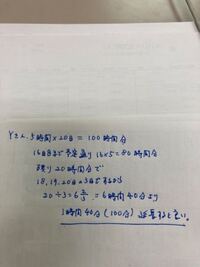 Yさん、5時間×20日 = 100時間分
16日目まで予定通り 16×5=80時間分
残り20時間分で
18,19,20日の3日でするから
20÷3=6 2/3 = 6時間40分より
1時間40分(100分)延長すると良い。